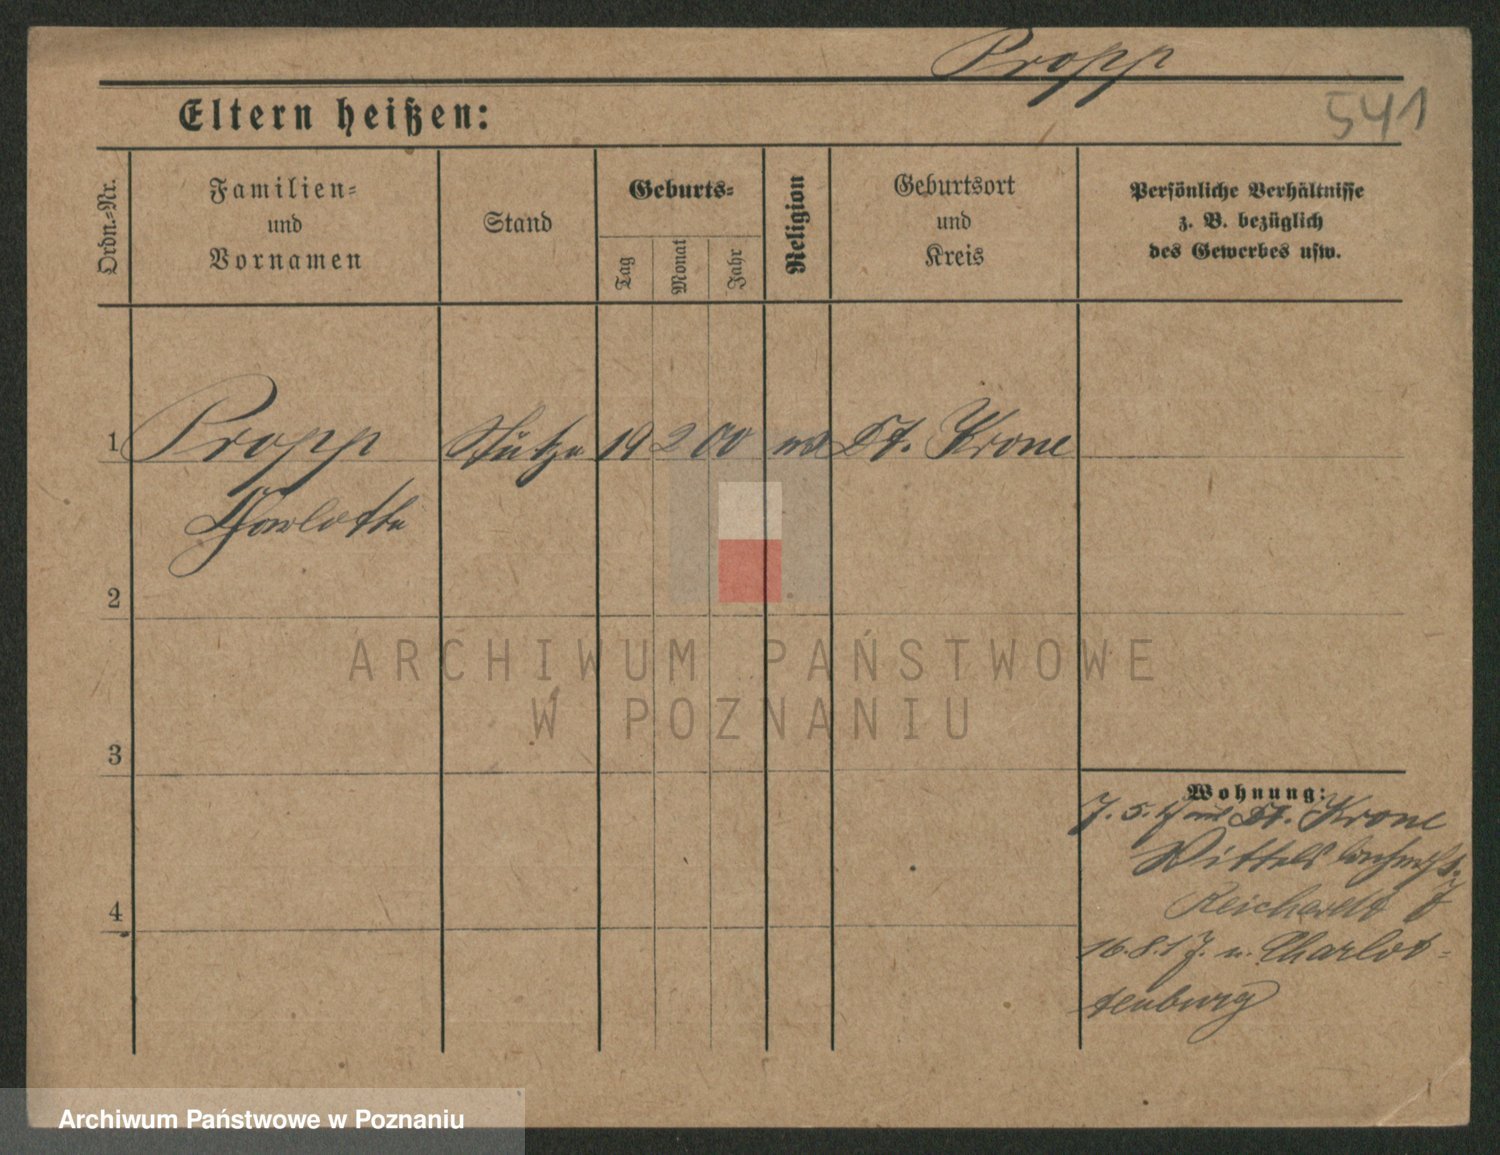 Propp
541
Eltern heißen:
Ordn.-Nr.
Familien-
und
Vornamen
Stand
Geburts-
Tag
Monat
Jahr
Religion
Geburtsort
und
Kreis
Persönliche Verhältnisse
z. B. bezüglich
des Gewerbes usw.
1 Propp Stütze 19 2 00 ev Dt. Krone
Charlotte
2
3
4
Wohnung:
7. 5. 17 Dt. Krone
Reichardt
16. 8. 17. n. Charlot-
tenburg
ARCHIWUM PAŃSTWOWE
W POZNANIU
Archiwum Państwowe w Poznaniu